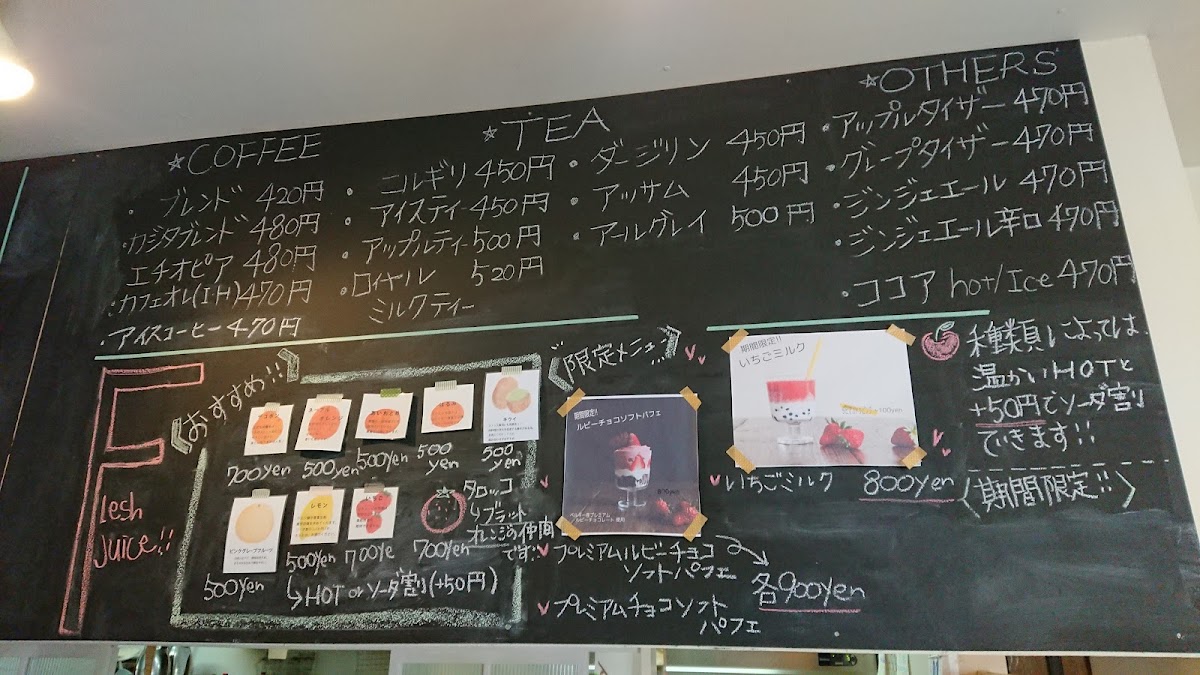 ☆COFFEE
・ブレンド 420円
・カジタブレンド 480円
エチオピア 480円
・カフェオレ(I・H)470円
・アイスコーヒー 470円
☆TEA
・ニルギリ 450円
・アイスティー 450円
・アップルティー 500円
・ロイヤル 520円
ミルクティー
・ダージリン 450円
・アッサム 450円
・アールグレイ 500円
☆OTHERS
・アップルタイザー 470円
・グレープタイザー 470円
・ジンジェエール 470円
・ジンジェエール辛口 470円
・ココア hot/Ice 470円
Flesh
Juice!!
《おすすめ!!》
700yen
500yen
500yen
500
yen
キウイ
500
yen
ピンクグレープフルーツ
500yen
レモン
500yen
700ye
700yen
タロッコ
↳ブラット
オレンジの仲間
です!!
↳HOT or ソーダ割り(+50円)
《限定メニュー》
期間限定!!
ルビーチョコソフトパフェ
ベルギー産プレミアム
ルビーチョコレート使用
プレミアムルビーチョコ
ソフトパフェ
プレミアムチョコソフト
パフェ
各900yen
期間限定!!
いちごミルク
・いちごミルク 800yen
種類によっては
温かいHOTと
+50円でソーダ割り
できます!!
〈期間限定!!〉